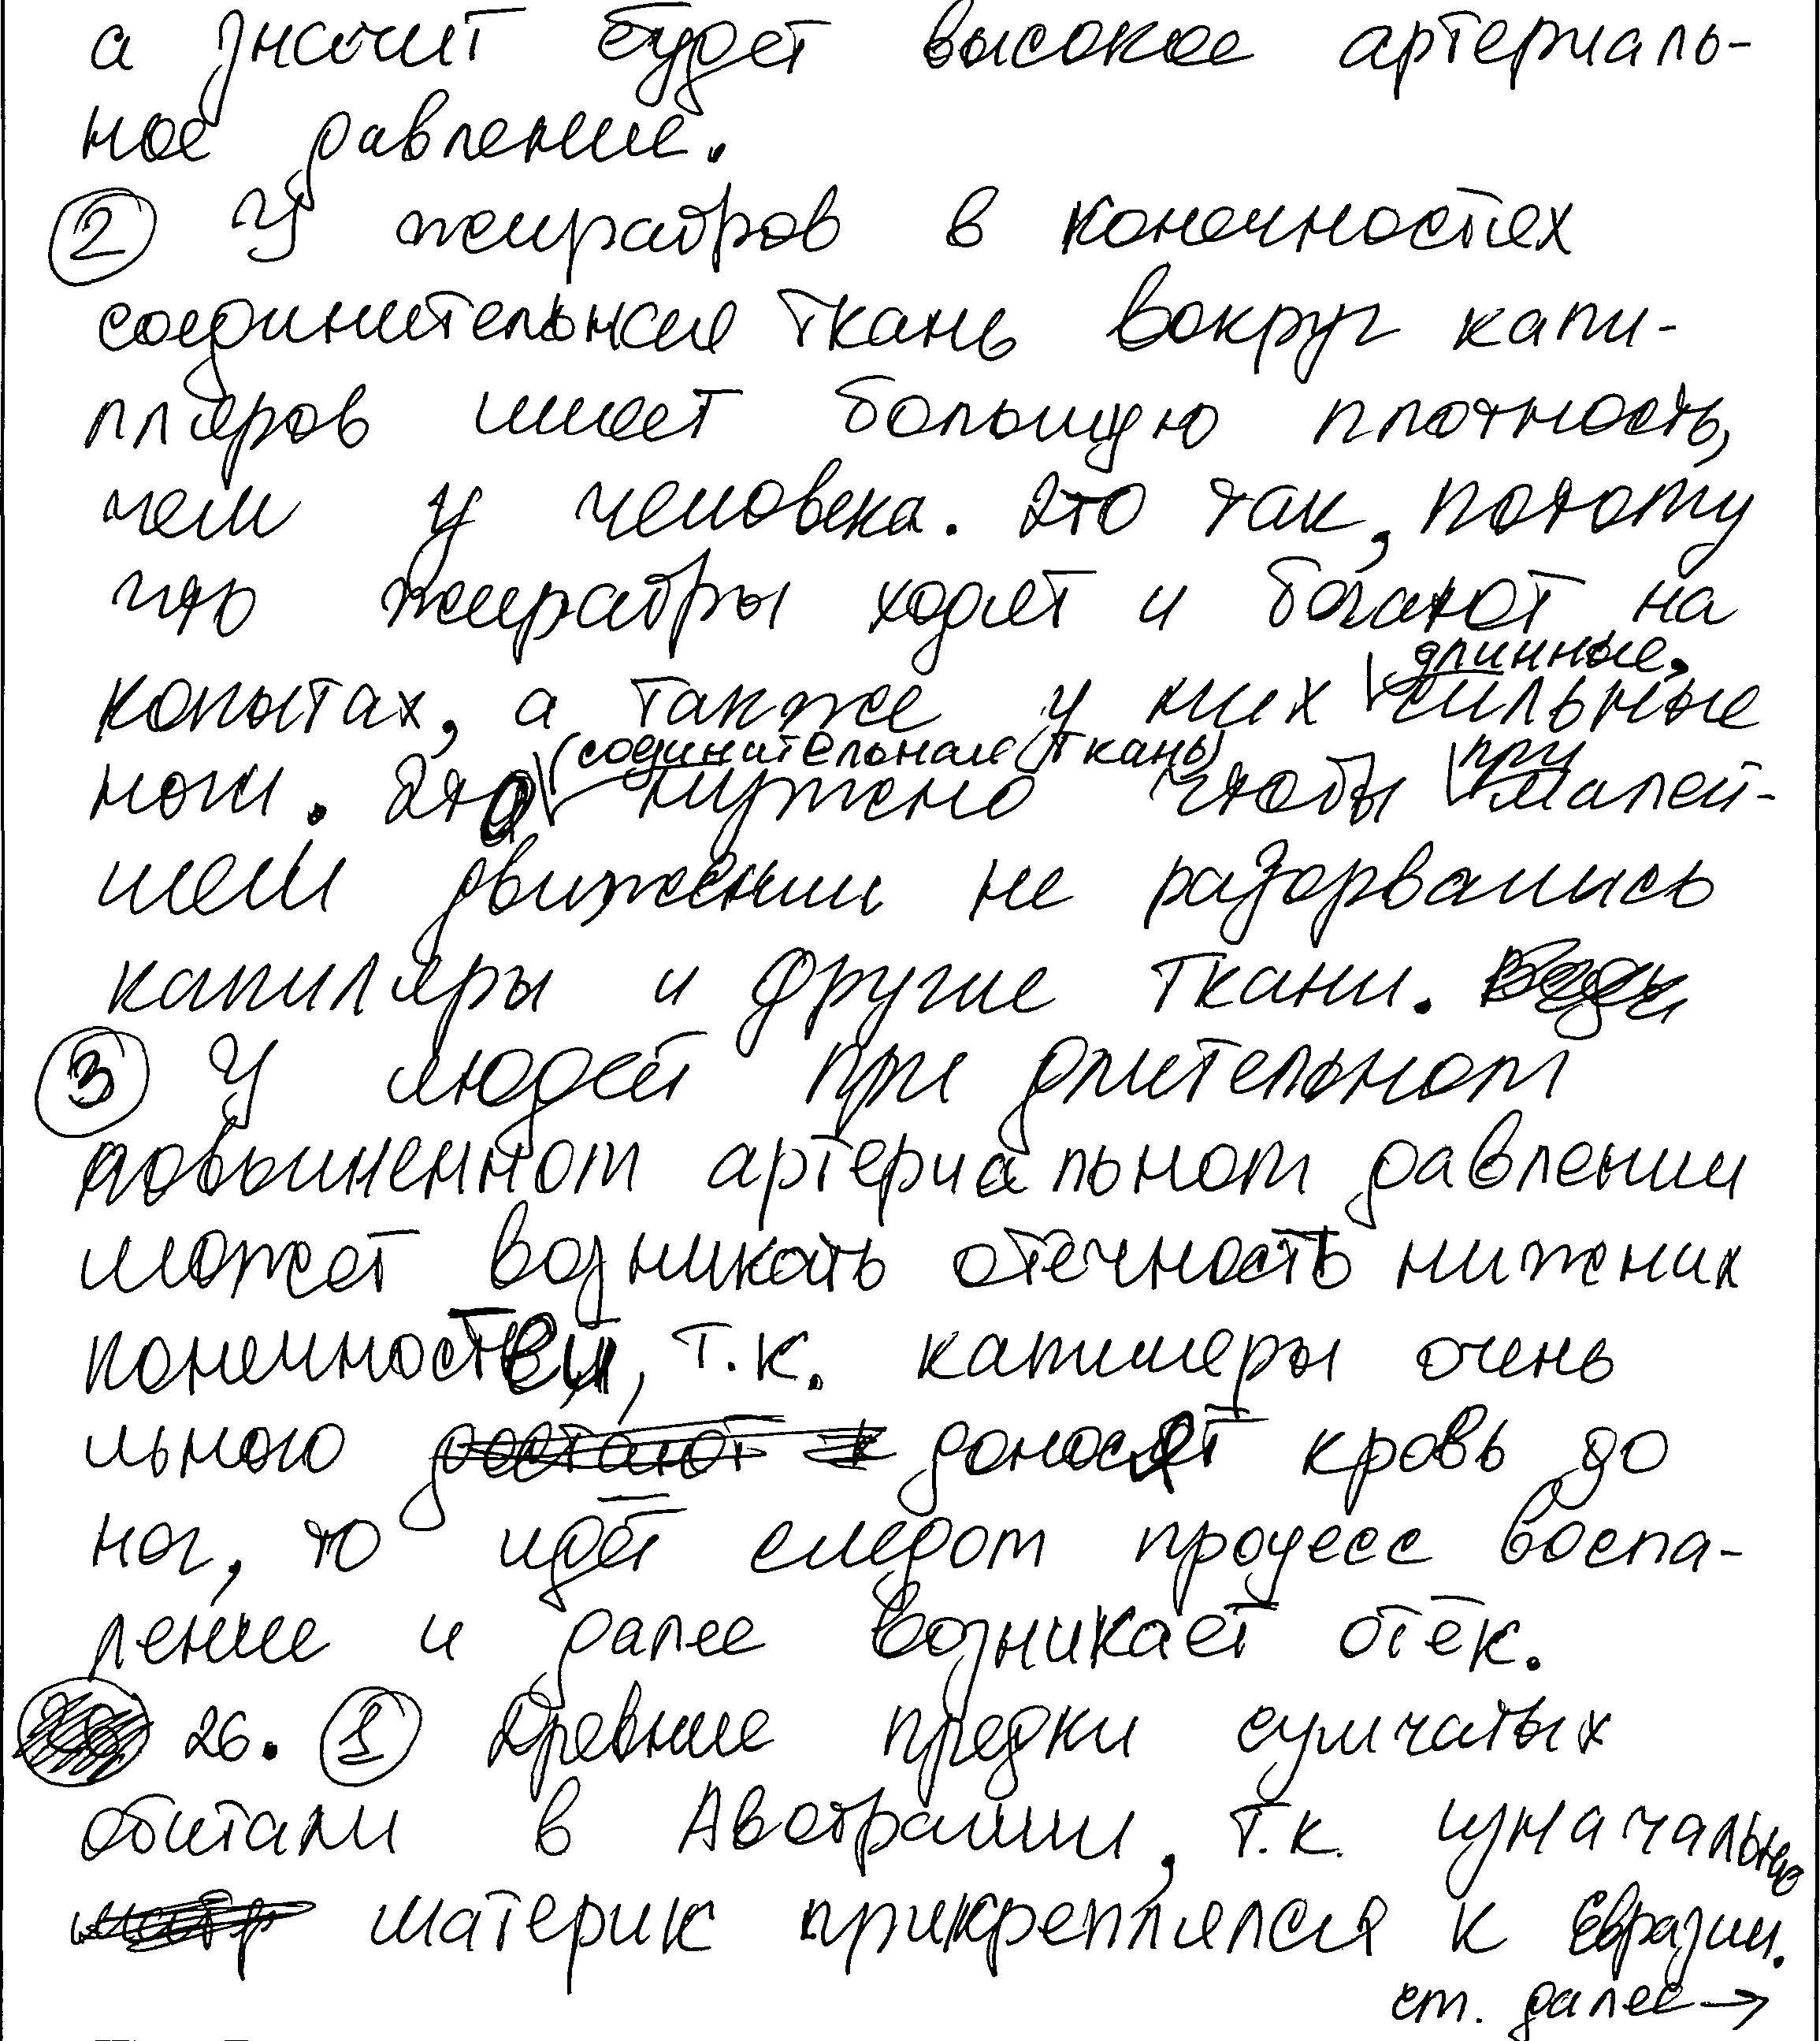 а значит будет высокое артериаль-
ное давление.
② У жирафов в конечностях
соединительная ткань вокруг капи-
лляров имеет большую плотность,
чем у человека. Это так, потому
что жирафы ходят и бегают на
копытах, а также у них длинные, сильные
ноги. Это (соединательная ткань) нужно чтобы при малей-
шем движении не разорвались
капилляры и другие ткани.
③ У людей при длительном
повышенном артериальном давлении
может возникать отёчность нижних
конечностей, т.к. капилляры очень
доносят кровь до
ног, то идёт следом процесс воспа-
ление и далее возникает отёк.
26. ① Древние предки сумчатых
обитали в Австралии, т.к. изначально
материк прикреплялся к Евразии.
см. далее →